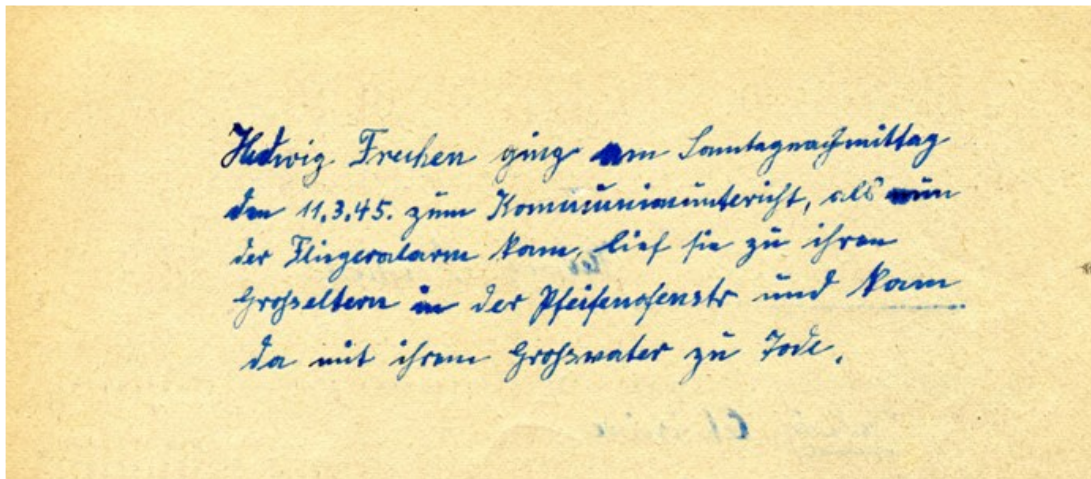 Hedwig Frechen ging am Sonntagnachmittag
den 11.3.45. zum Kommunionunterricht, als nun
der Fliegeralarm kam, lief sie zu ihren
Großeltern in der Pfeifenofenstr und kam
da mit ihrem Großvater zu Tode.